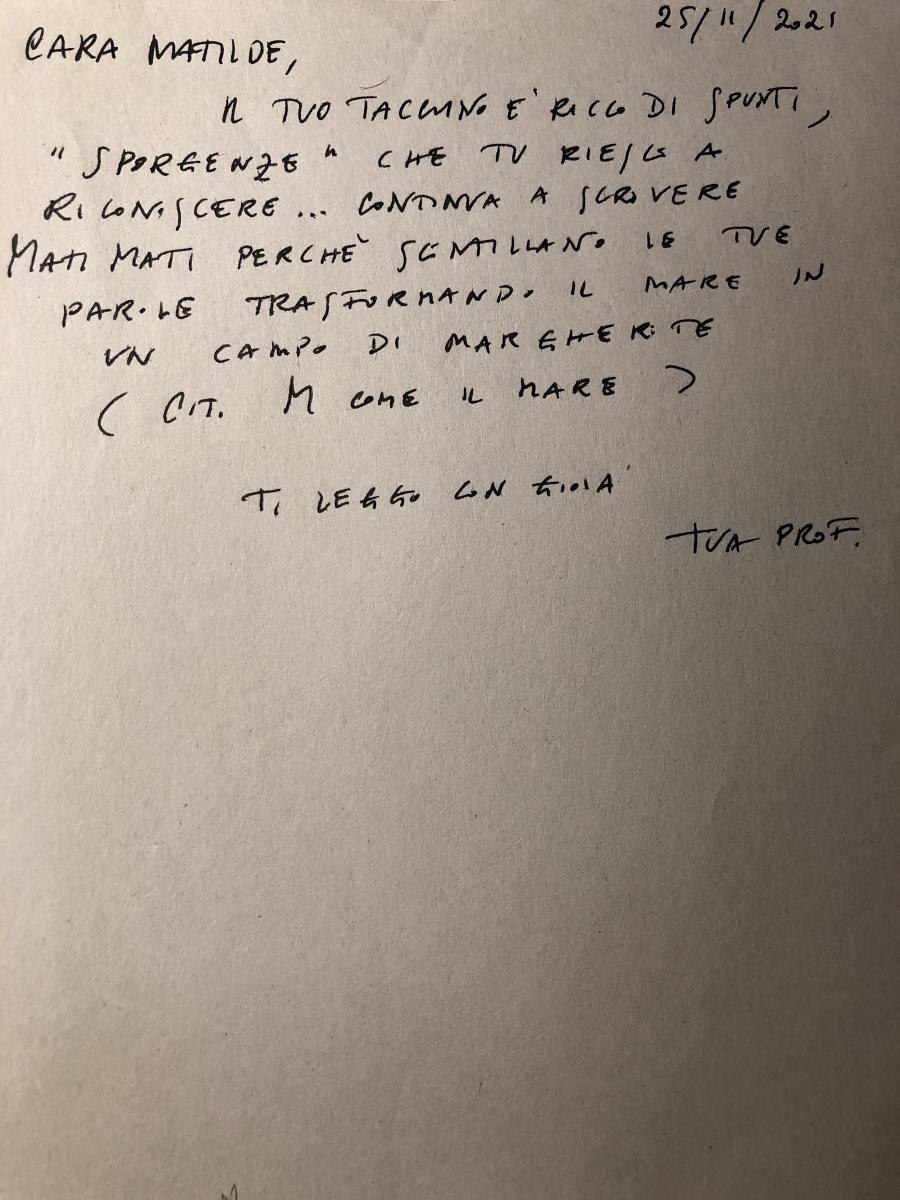 25/11/2021
CARA MATILDE,
IL TUO TACCUINO E' RICCO DI SPUNTI,
"SPORGENZE" CHE TU RIESCI A
RICONOSCERE... CONTINUA A SCRIVERE
MATI MATI PERCHÈ SCINTILLANO LE TUE
PAROLE TRASFORMANDO IL MARE IN
UN CAMPO DI MARGHERITE
( CIT. M COME IL MARE )
TI LEGGO CON GIOIA
TUA PROF.